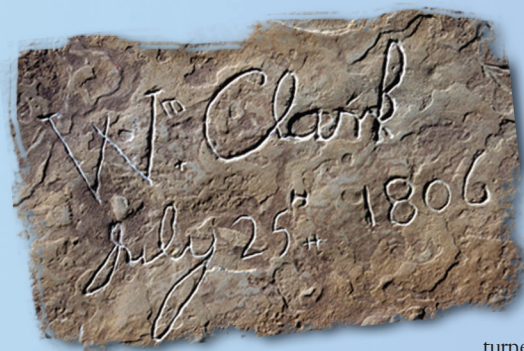 Wm. Clark
July 25th 1806
turne